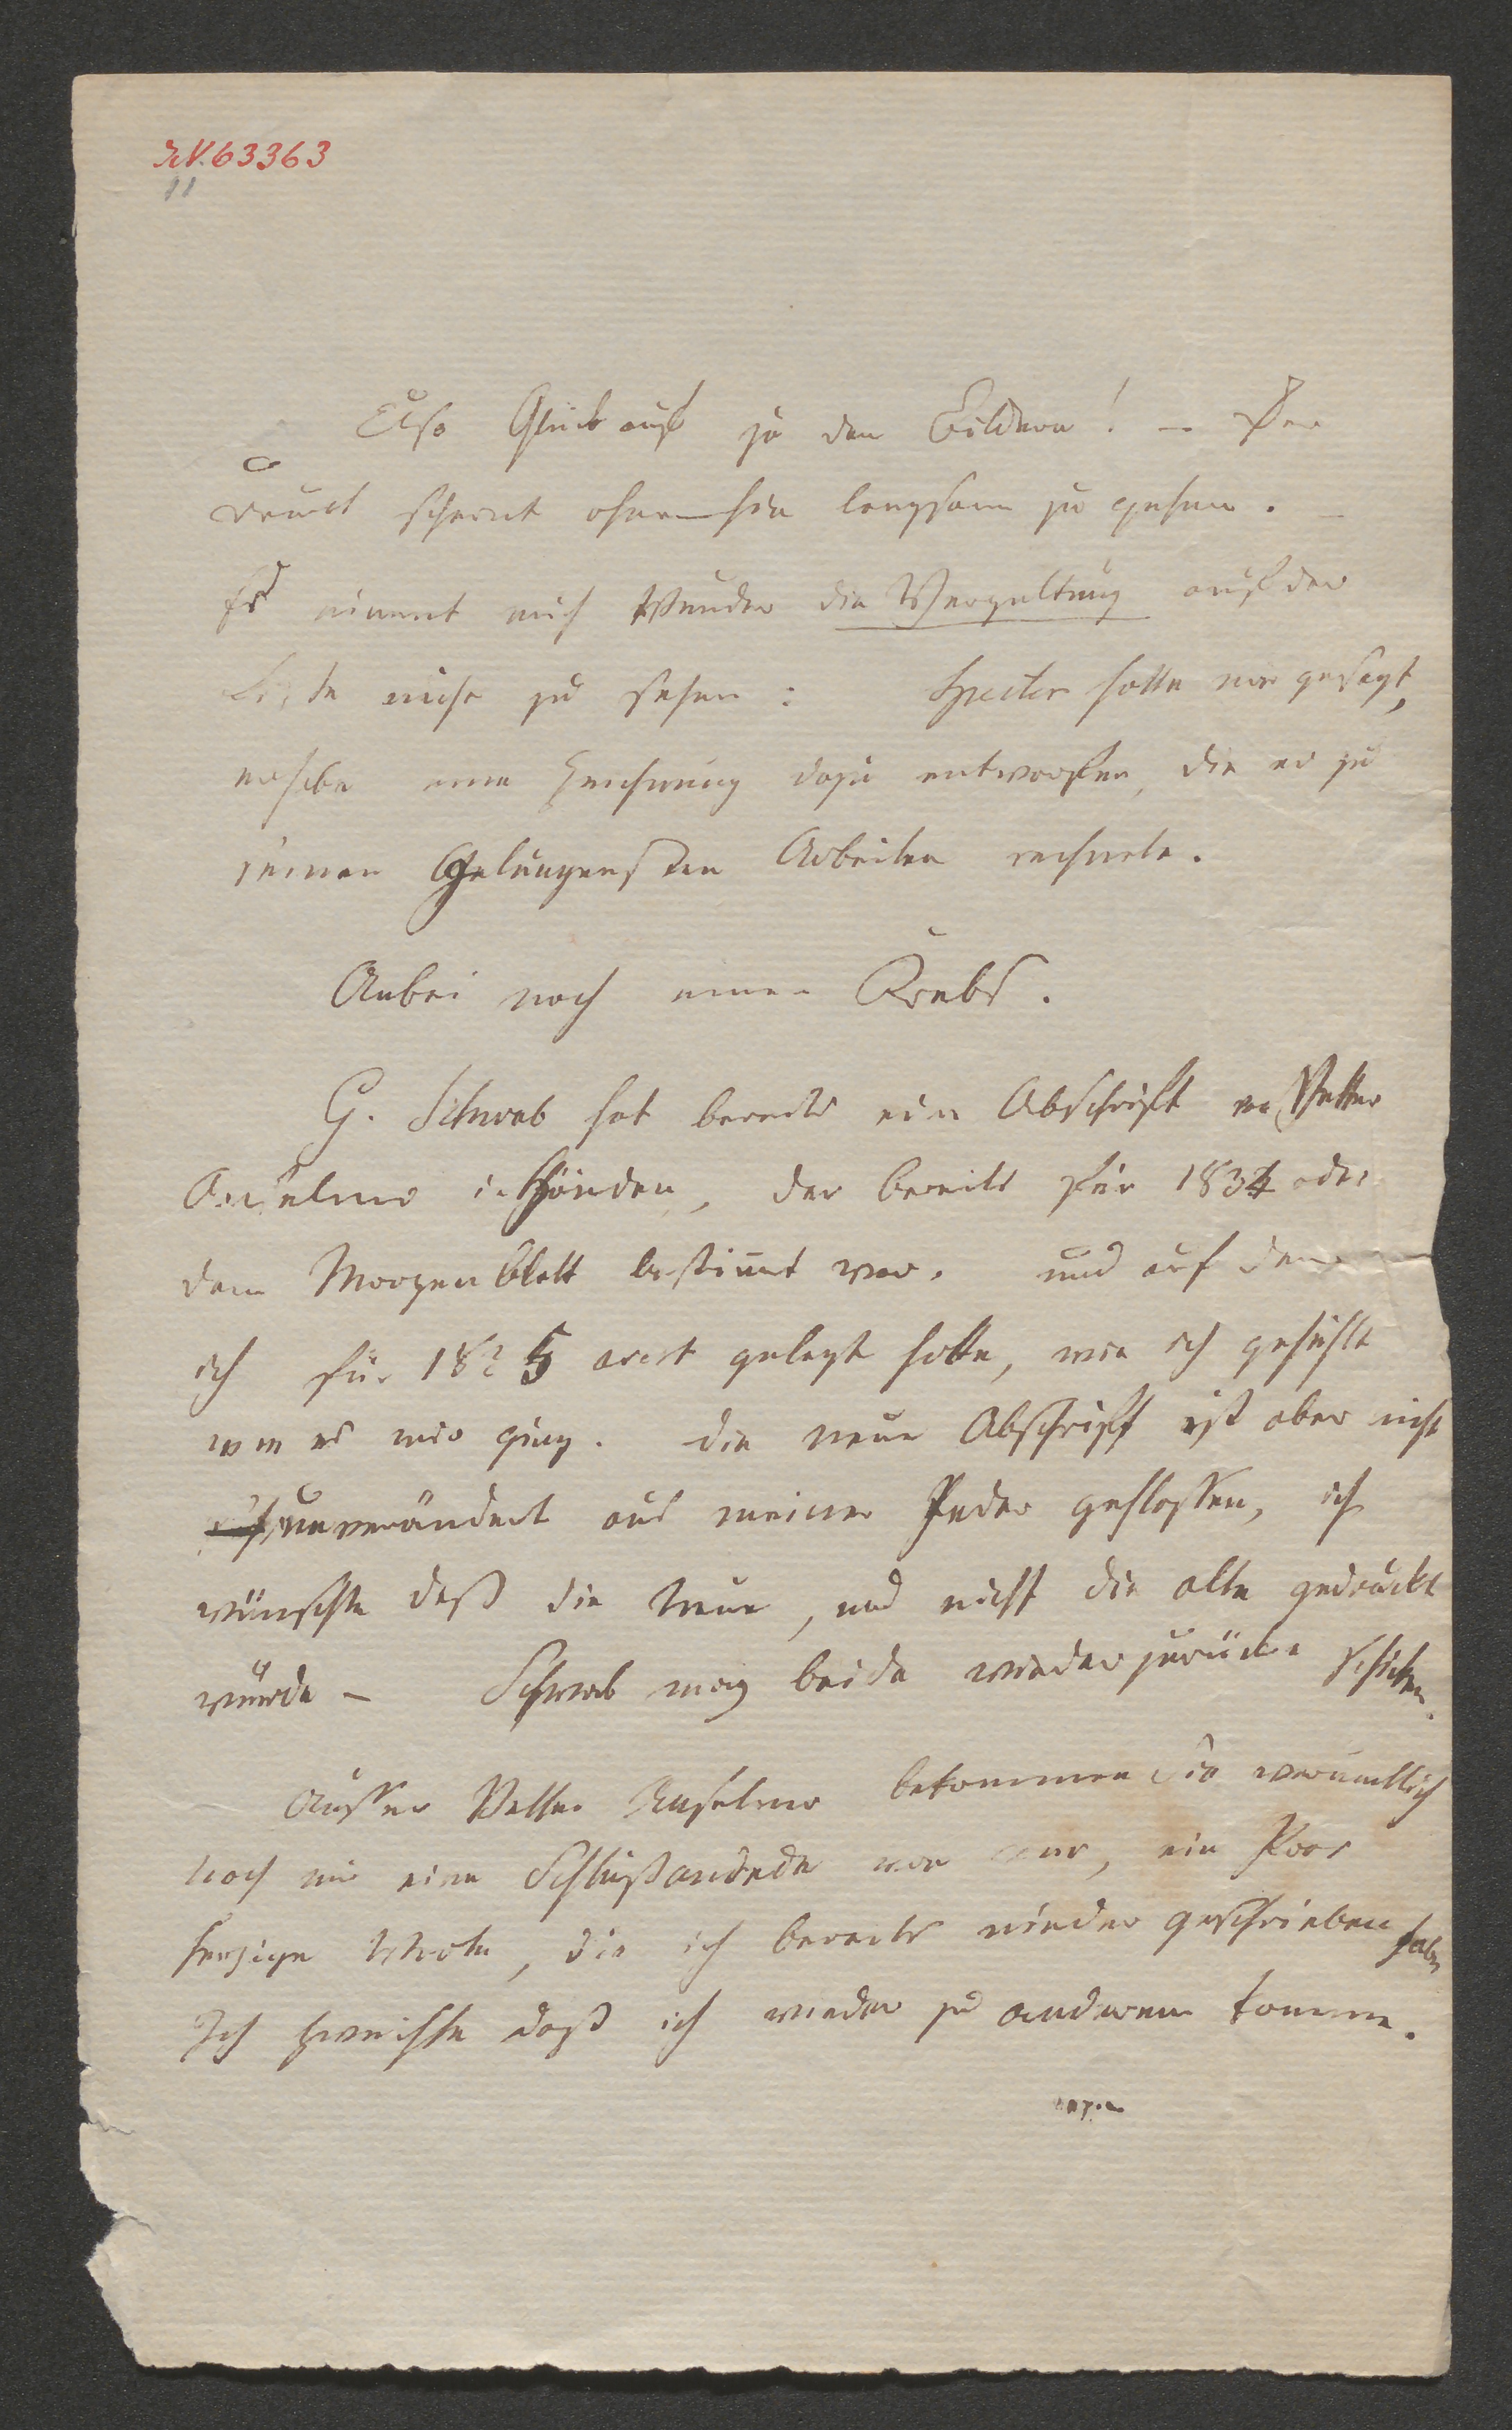 N. 63363
11
Also Glück auf zu den Bildern! – Der
Druck scheint ohnehin langsam zu gehen. –
Es nimmt mich Wunder die Vergeltung auf der
Liste nicht zu sehen: Speckter hatte mir gesagt,
er habe eine Zeichnung dazu entworfen, die er zu
seinen Gelungensten Arbeiten rechnete.
Anbei noch einen Krebs.
G. Schwab hat bereits eine Abschrift v. Vetter
Anselmo in Händen, der bereits für 1834 oder
dem Morgenblatt bestimt war. und auf den
ich für 1835 gelegt hatte, wie ich gefühlt
wie es mir ging. Die neue Abschrift ist aber nicht
unverändert aus meiner Feder geflossen, ich
wünschte daß die Neue, und nicht die alte gedruckt
würde – Schwab mag beide wieder zurücke schicken.
Ausser Vetter Anselmo bekommen Sie vermuthlich
noch nur eine Schlußandede von mir, ein Paar
herzige Worte, die ich bereits nieder geschrieben habe
Ich zweifle daß ich wieder zu anderem komme.